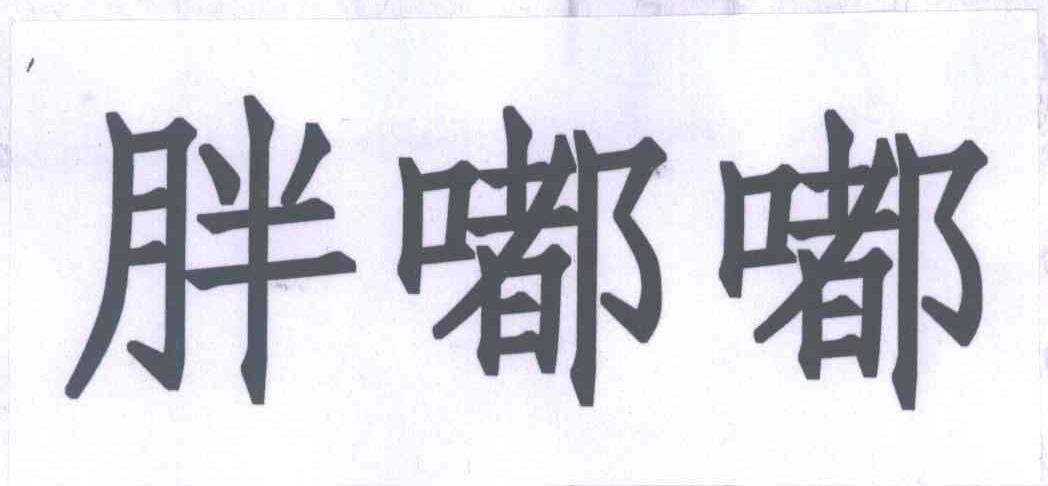 胖嘟嘟